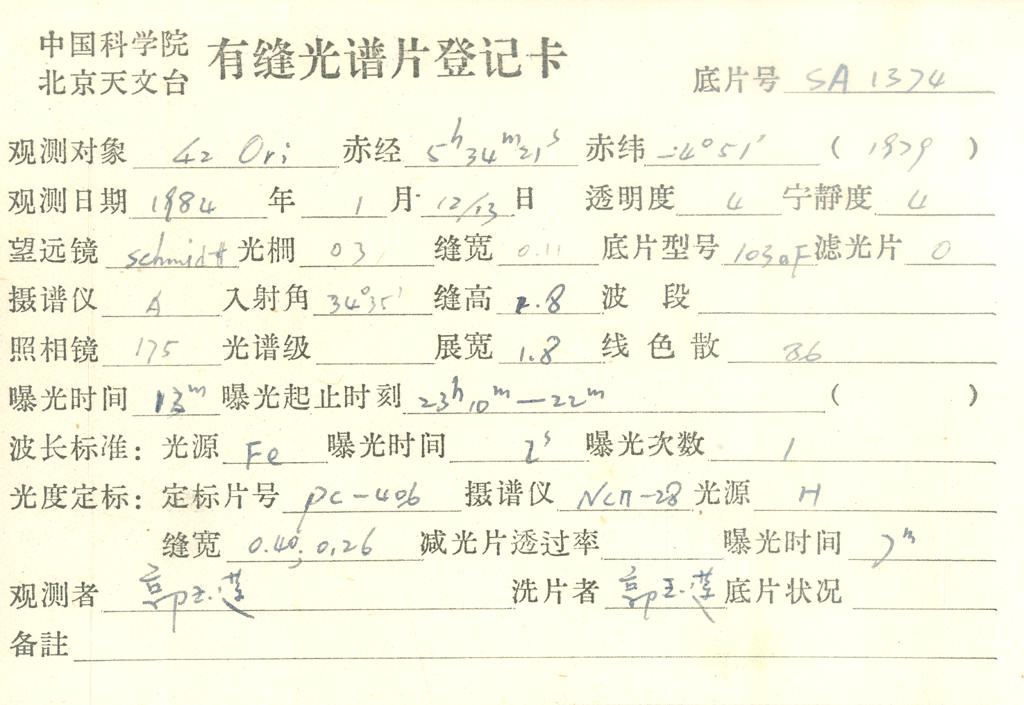 中国科学院
北京天文台
有缝光谱片登记卡
底片号 SA 1374
观测对象 42 Ori 赤经 5h34m21s 赤纬 -4°51' ( 1979 )
观测日期 1984 年 1 月 12/13 日 透明度 4 宁静度 4
望远镜 schmidt 光栅 03 缝宽 0.11 底片型号 103aF 滤光片 0
摄谱仪 A 入射角 34°35' 缝高 1.8 波段
照相镜 175 光谱级 展宽 1.8 线色散 86
曝光时间 13m 曝光起止时刻 23h10m—22m ( )
波长标准: 光源 Fe 曝光时间 2s 曝光次数 1
光度定标: 定标片号 PC-406 摄谱仪 ИСП-28 光源 H
缝宽 0.40, 0.26 减光片透过率 曝光时间 7m
观测者 郭玉莲 洗片者 郭玉莲 底片状况
备註